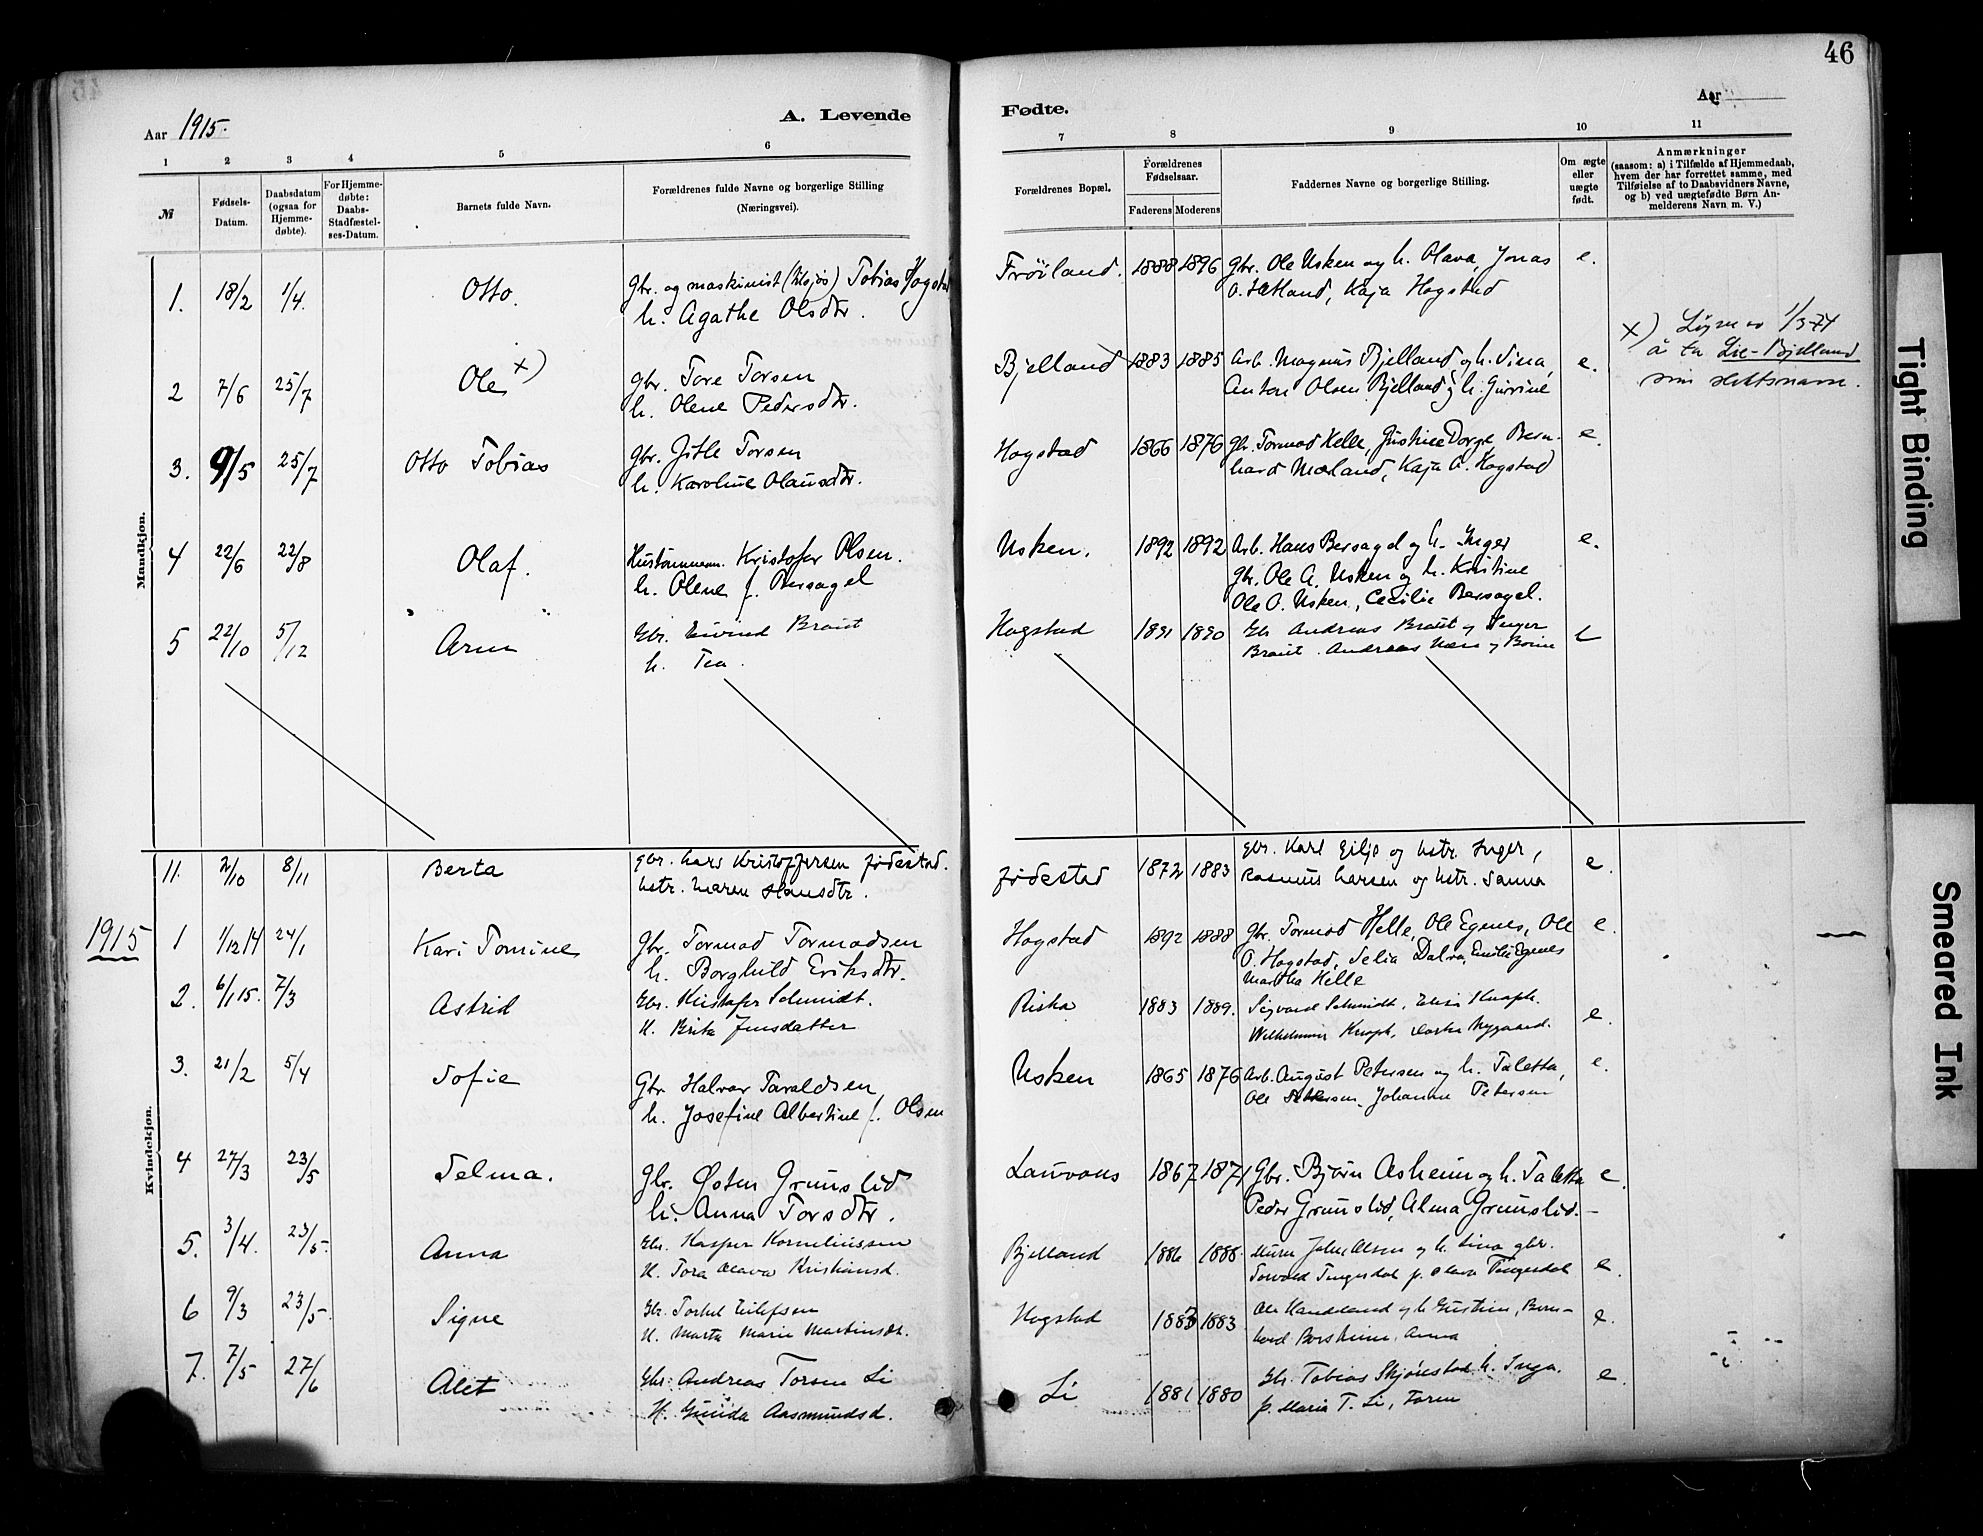 46
Aar 1915.
A. Levende
Fødte.
Aar
1 2 3 4 5 6 7 8 9 10 11
№
Fødsels-Datum.
Daabsdatum (ogsaa for Hjemme-døbte).
For Hjemme-døbte: Daabs-Stadfæstel-ses-Datum.
Barnets fulde Navn.
Forældrenes fulde Navne og borgerlige Stilling (Næringsvei).
Forældrenes Bopæl.
Forældrenes Fødselsaar.
Faderens Moderens
Faddernes Navne og borgerlige Stilling.
Om ægte eller uægte født.
Anmærkninger
(saasom: a) i Tilfælde af Hjemmedaab,
hvem der har forrettet samme, med
Tilføielse af to Daabsvidners Navne,
og b) ved uægtefødte Børn An-
melderens Navn m. V.)
Mandkjøn.
1. 18/2 1/4. Otto. Gbr. og maskinist Tobias Hogstad Frøiland. 1888 1896 Gbr. Ole Usken og h. Olava, Jonas e.
h. Agathe Olsdtr. O. Hetland, Kaja Hogstad
2 7/6 25/7 Ole x) gbr. Tore Torsen Bjelland 1883 1885 Arb. Magnus Bjelland og h. Sina, e.
h. Olene Pedersdtr. Anton Olsen Bjelland og h. Gurine
x) 1/3-74
å ta Lie-Bjelland
som slektsnavn.
3. 9/5 25/7 Otto Tobias gbr. Jitle Torsen Hogstad 1866 1876 Gbr. Tormod Helle, Gustava Dorge Bern- e.
h. Karoline Olausdtr. hard Mæland, Kaja O. Hogstad
4 22/6 22/8 Olaf. Hustømmerm. Kristofer Olsen. Usken. 1892 1892 Arb. Hans Bersagel og h. Inger e.
h. Olene f. Bersagel gbr. Ole A. Usken og h. Kristine
Ole O. Usken, Cecilie Bersagel.
5 22/10 5/12 Arne Gbr. Eivind Braut Hogstad 1891 1890 Gbr Andreas Braut og Inger e
h. Tea. Braut. Andreas
Kvindekjøn.
11. 2/10 8/11 Berta gbr. Lars Kristoffersen Jødestad. Jødestad 1872 1883 gbr. Karl Gilje og hstr. Inger, e.
hstr. Maren Hansdtr. Rasmus Larsen og hstr. Sanna
1915
1 1/12 14 24/1 Kari Tomine Gbr. Tormod Tormodsen Hogstad 1892 1888 gbr. Tormod Helle, Ole Egenes, Ole e.
h. Borghild Eriksdtr. O. Hogstad, Selia Dalva, Emilie Egenes
Martha Helle
2. 6/1 15. 7/3 Astrid Gbr. Kristofer Schmidt. Riska 1883 1889. Sigvard Schmidt, Knaph. e.
H. Brita Jensdatter Wilhelmine Knaph, Nygaard.
3. 21/2 5/4 Sofie Gbr Halvar Taraldsen Usken 1865 1876 Arb. August Petersen og h. Taletta, e.
h. Josefine Albertine f. Olsen Ole Petersen, Johanne Petersen
4 27/3 23/5 Selma. Gbr. Østen Grunslid Lauvaas 1867 1871 Gbr. Bjørn Asheim og h. Taletta e.
h. Anna Torsdtr. Peder Grunslid, Alma Grunslid.
5. 3/4. 23/5. Anna Gbr. Kasper Korneliussen Bjelland 1886 1888. Murer John Olsen og h. Lina, gbr. e.
H. Tora Olava Kristiansd. Torvald Tengesdal p. Olava Tengesdal
6 9/3 23/5. Signe Gbr. Torkel Eilefsen Hogstad 1883 1883 Ole Handeland og h Gustine, Bern- e.
H. Marta Marie Martinsdtr. hard Borsheim, Anna
7. 7/5 27/6 Alet Gbr. Andreas Torsen Li Li 1881 1880 Gbr. Tobias Skjørestad h. Inga. e.
H. Gunda Aasmundsd. p. Maria T. Li, Toren
Tight Binding
Smeared Ink